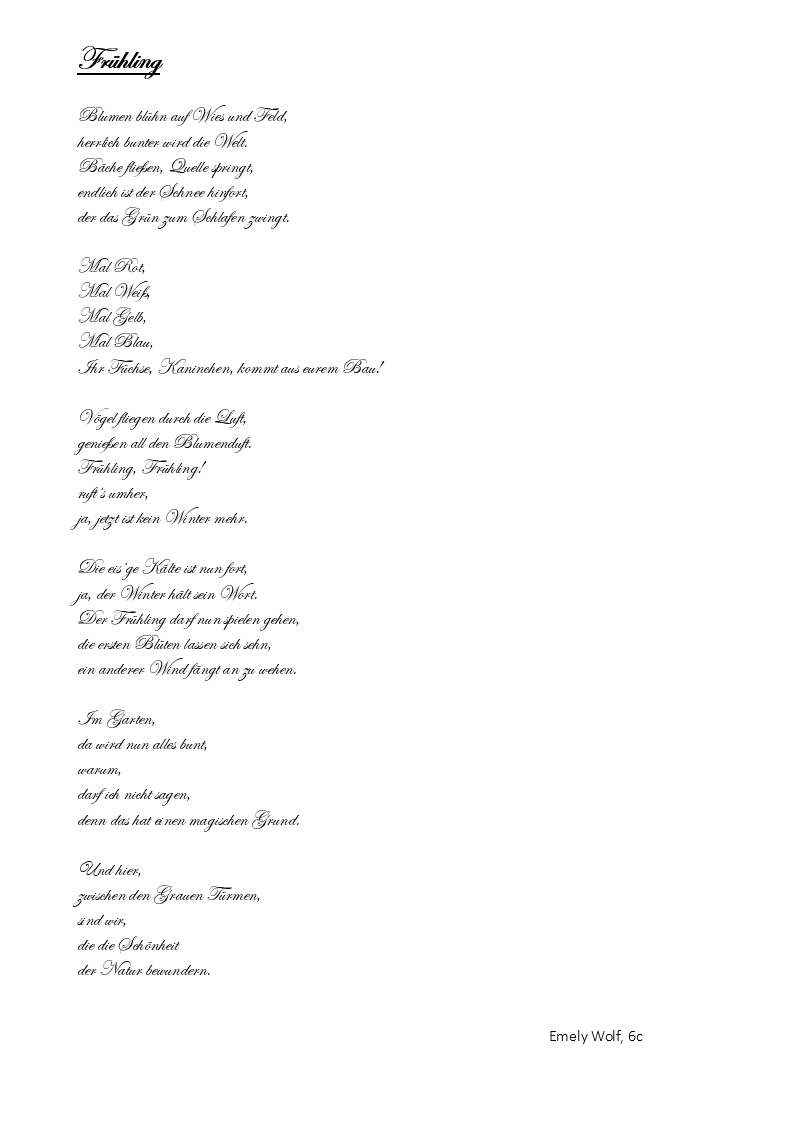 Frühling
Blumen blühn auf Wies und Feld,
herrlich bunter wird die Welt.
Bäche fließen, Quelle springt,
endlich ist der Schnee hinfort,
der das Grün zum Schlafen zwingt.
Mal Rot,
Mal Weiß,
Mal Gelb,
Mal Blau,
Ihr Füchse, Kaninchen, kommt aus eurem Bau!
Vögel fliegen durch die Luft,
genießen all den Blumenduft.
Frühling, Frühling!
ruft's umher,
ja, jetzt ist kein Winter mehr.
Die eis'ge Kälte ist nun fort,
ja, der Winter hält sein Wort.
Der Frühling darf nun spielen gehen,
die ersten Blüten lassen sich sehn,
ein anderer Wind fängt an zu wehen.
Im Garten,
da wird nun alles bunt,
warum,
darf ich nicht sagen,
denn das hat einen magischen Grund.
Und hier,
zwischen den Grauen Türmen,
sind wir,
die die Schönheit
der Natur bewundern.
Emely Wolf, 6c